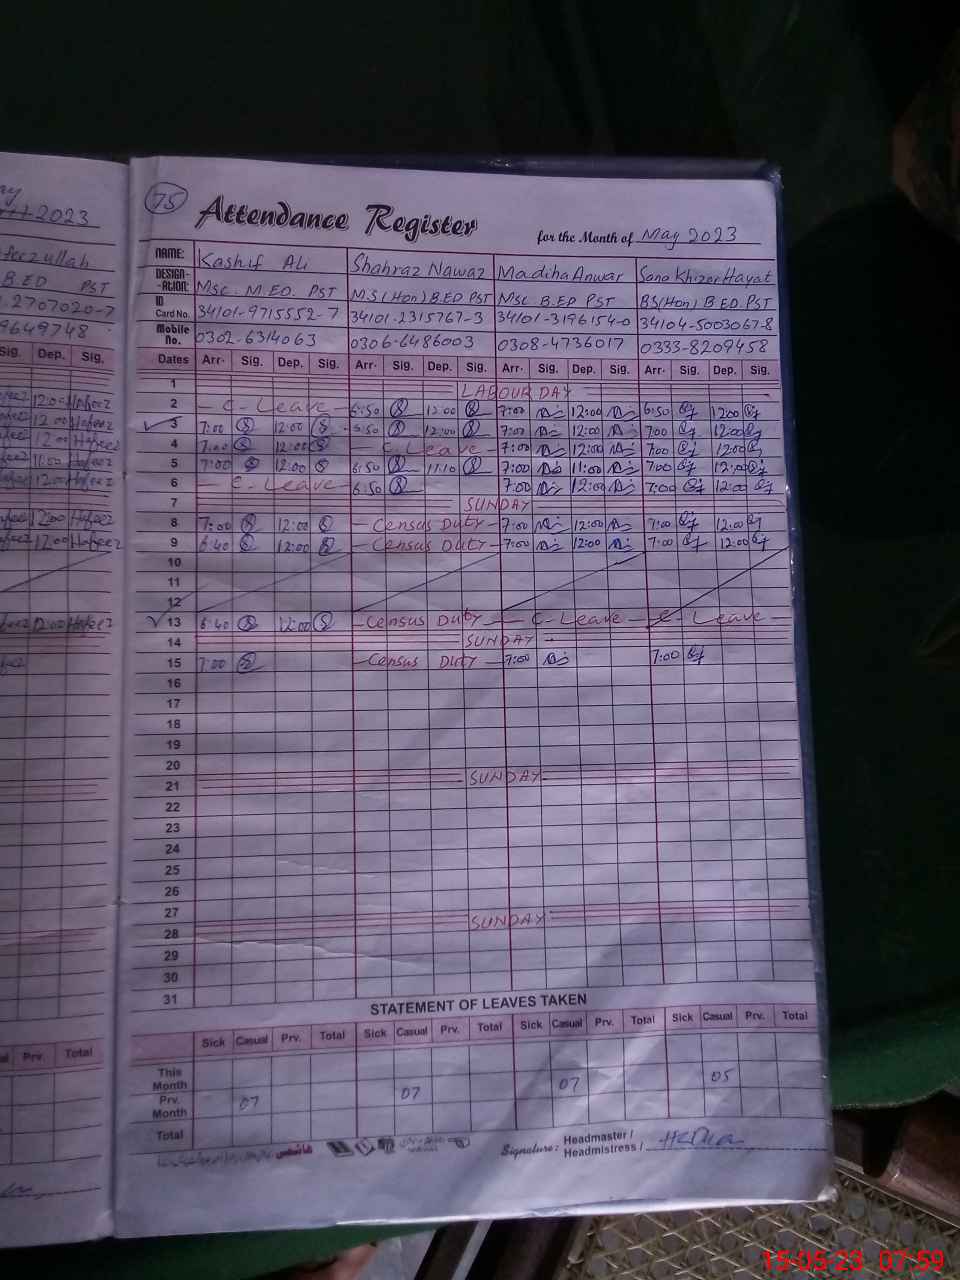 2023
feezullah
B.ED PST
2707020-7
9649748
Sig. Dep. Sig.
75
Attendance Register
for the Month of May 2023
NAME: Kashif Ali Shahraz Nawaz Madiha Anwar Sana Khizar Hayat
DESIGN-ATION: MSc. M.ED. PST M.S(Hon) B.ED PST MSc. B.ED PST BS(Hon) B.ED. PST
ID Card No. 34101-9715552-7 34101-2315767-3 34101-3196154-0 34104-5003067-8
Mobile No. 0302-6314063 0306-6486003 0308-4736017 0333-8209458
Dates Arr. Sig. Dep. Sig. Arr. Sig. Dep. Sig. Arr. Sig. Dep. Sig. Arr. Sig. Dep. Sig.
1 LABOUR DAY
2 C-Leave 6:50 12:00 7:00 12:00 6:50 12:00
3 7:00 12:00 6:50 12:00 7:00 12:00 7:00 12:00
4 7:00 12:00 C-Leave 7:00 12:00 7:00 12:00
5 7:00 12:00 6:50 11:10 7:00 11:00 7:00 12:00
6 C-Leave 6:50 7:00 12:00 7:00 12:00
7 SUNDAY
8 7:00 12:00 Census Duty 7:00 12:00 7:00 12:00
9 6:40 12:00 Census Duty 7:00 12:00 7:00 12:00
10
11
12
13 6:40 12:00 Census Duty C-Leave C-Leave
14 SUNDAY
15 7:00 Census Duty 7:00 7:00
16
17
18
19
20
21 SUNDAY
22
23
24
25
26
27
28 SUNDAY
29
30
31
STATEMENT OF LEAVES TAKEN
Prv. Total
Sick Casual Prv. Total Sick Casual Prv. Total Sick Casual Prv. Total Sick Casual Prv. Total
This Month
Prv. Month 07 07 07 05
Total
Signature: Headmaster / Headmistress /
15-05-23 07:59